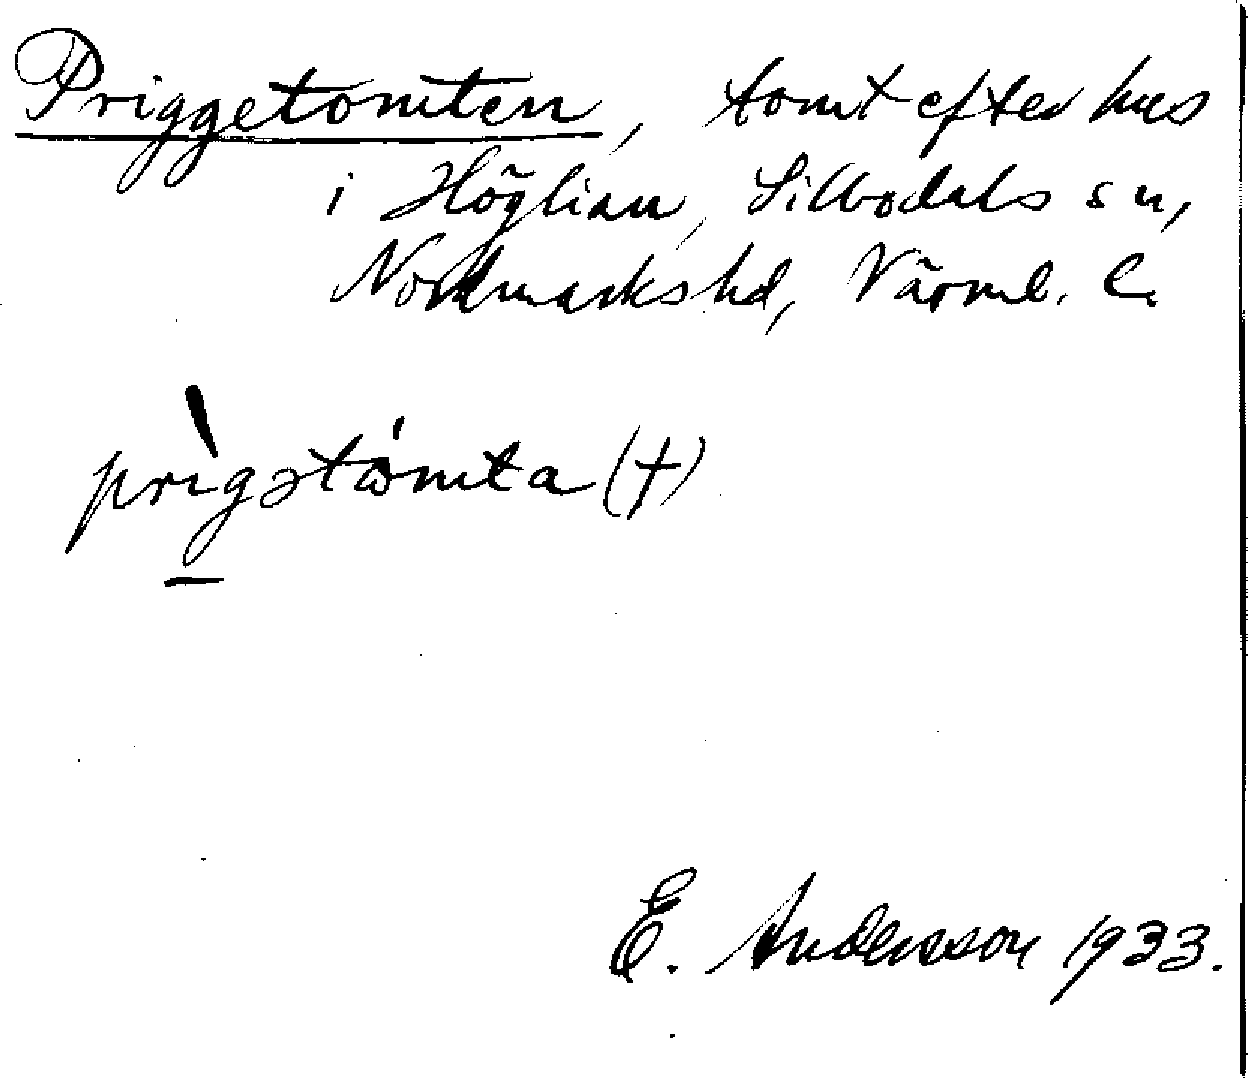 Priggetomten, tomt efter hus
i Höglian, Sillbodals sn,
Nordmarks hd, Värml. l.
prìgətòmta (†)
E. Andersson 1933.